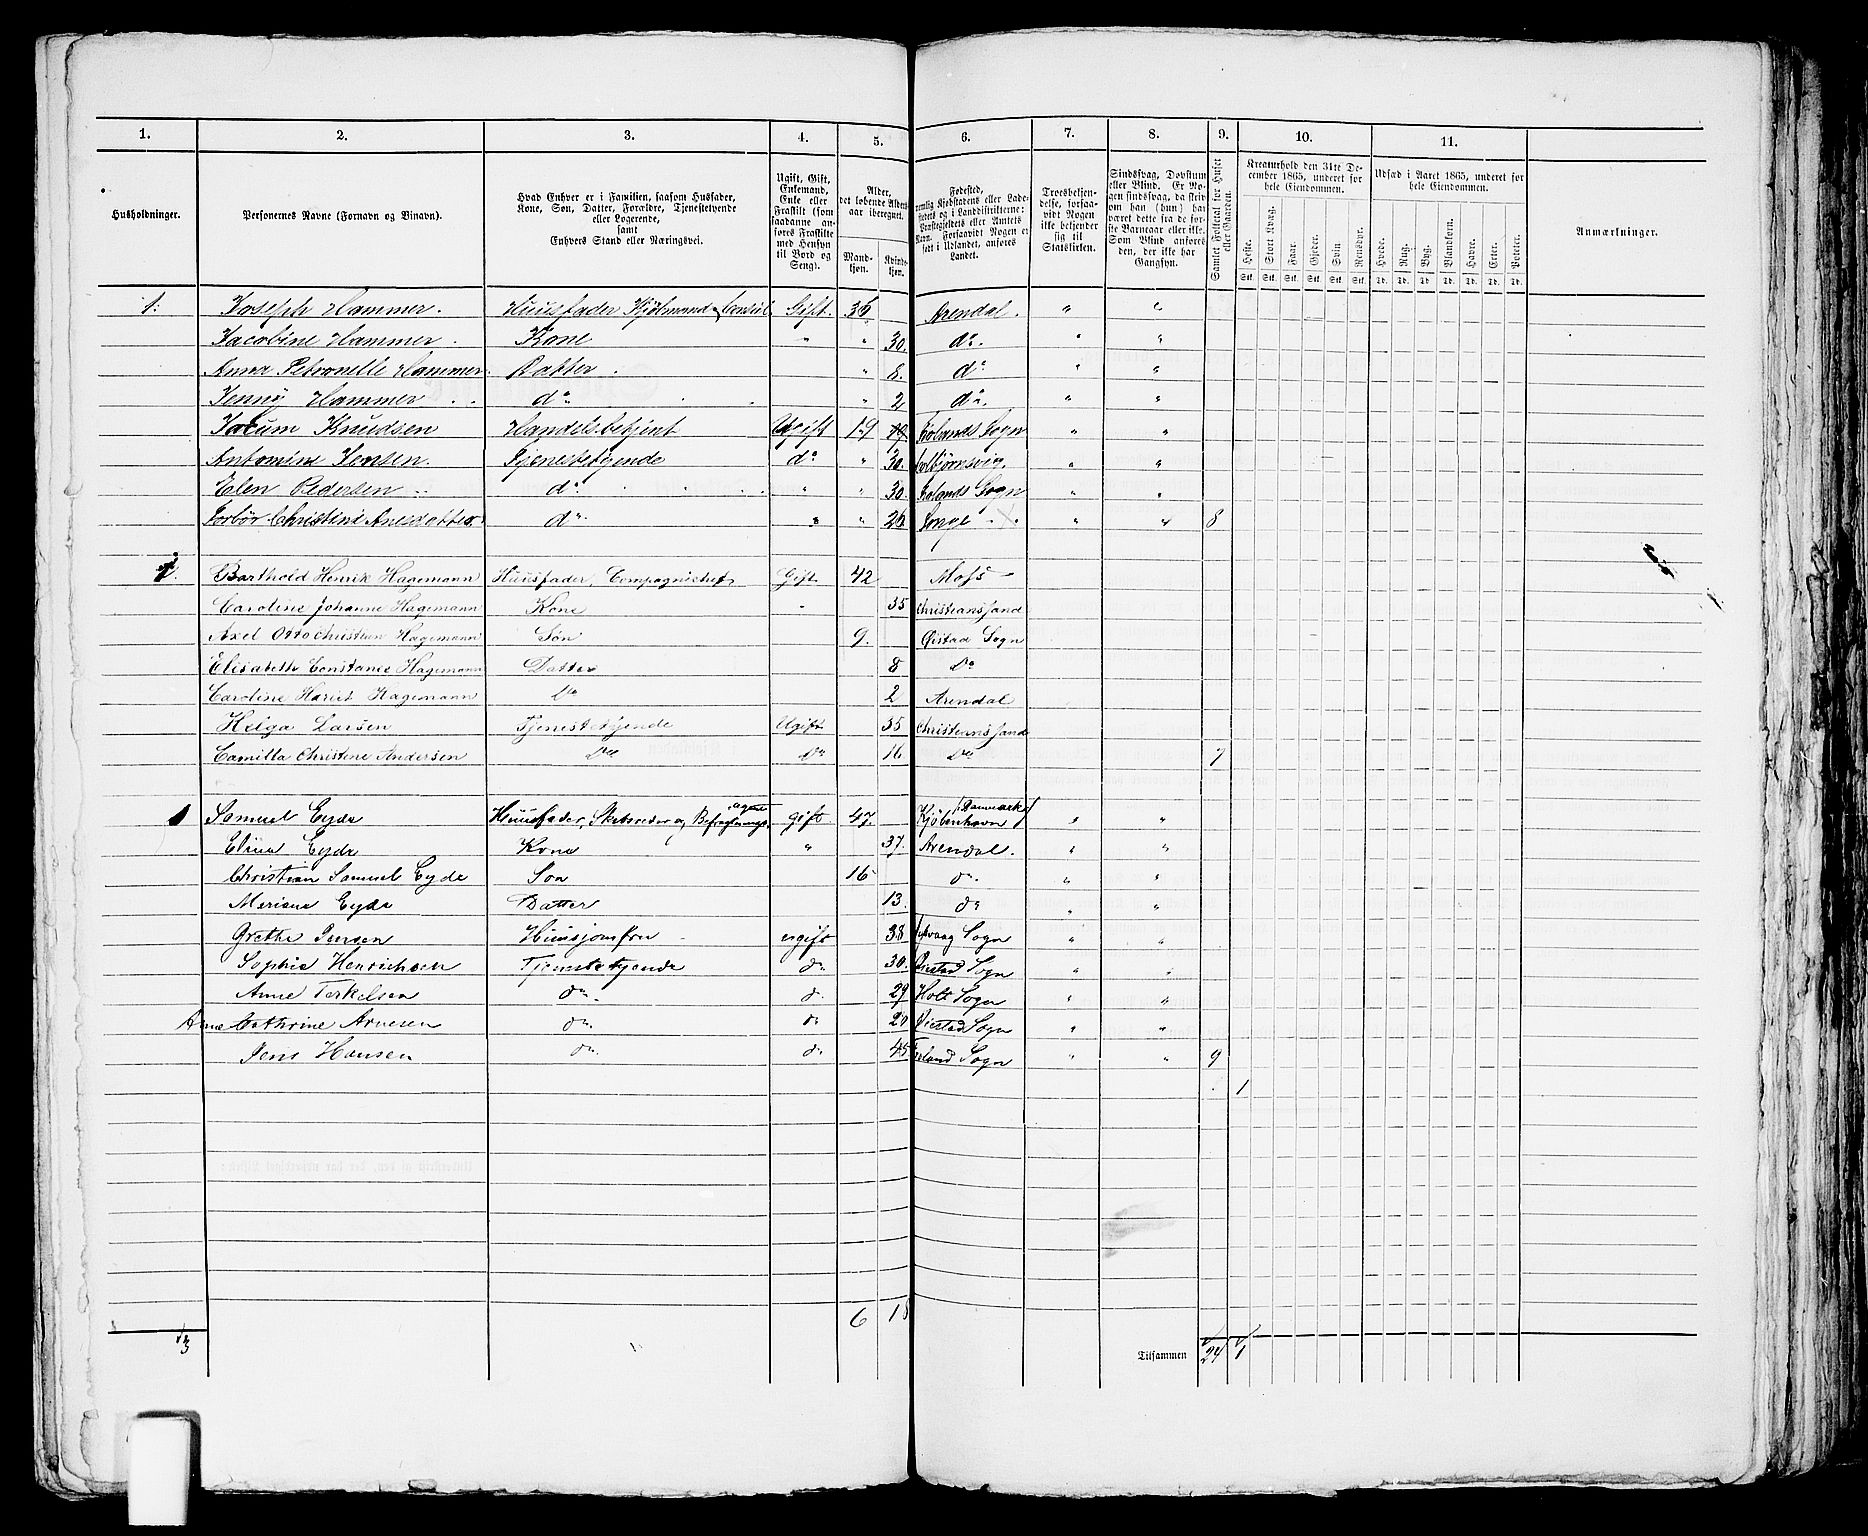 1. 2. 3. 4. 5. 6. 7. 8. 9. 10. 11.
Husholdninger.
Personernes Navne (Fornavn og Binavn).
Hvad Enhver er i Familien, saasom Husfader, Kone, Søn, Datter, Forældre, Tjenestetyende eller Logerende, samt Enhvers Stand eller Næringsvei.
Ugift, Gift, Enkemand, Enke eller Fraskilt (som saadanne anføres Fraskilte med Hensyn til Bord og Seng).
Alder, det løbende Alders-aar iberegnet.
Mand-kjøn. Kvinde-kjøn.
Fødested, nemlig Kjøbstadens eller Ladestedets og i Landdistrikterne: Præstegjeldets eller Amtets Navn. Forsaavidt Nogen er født i Udlandet, anføres Landet.
Troesbekjendelse, forsaavidt Nogen ikke bekjender sig til Statskirken.
Sindssvag, Døvstum eller Blind. Er Nogen sindssvag, da skrives om han (hun) har været dette fra de første Barneaar eller ikke. Som Blind anføres den, der ikke har Gangsyn.
Samlet Folketal for Huset eller Gaarden.
Kreaturhold den 31te December 1865, underet for hele Eiendommen.
Heste. Stort Kvæg. Faar. Gjeder. Svin. Rensdyr.
Stk. Stk. Stk. Stk. Stk. Stk.
Udsæd i Aaret 1865, underet for hele Eiendommen.
Hvede. Rug. Byg. Blandkorn. Havre. Erter. Poteter.
Td. Td. Td. Td. Td. Td. Td.
Anmærkninger.
1. Joseph Hammer. Huusfader Kjøbmand & Consul Gift. 36 Arendal. " "
Jacobine Hammer. Kone " " 30. do. " "
Anna Petronelle Hammer. Datter. " 8. do " "
Jenny Hammer do " 2 do. " "
Knudsen Handelsbetjent Ugift 19 19 Holands Sogn " "
Antomine Jensen. Tjenestetyende do " 30. Kolbjørnsvig. " "
Elen Pedersen do. " " 30. Holands Sogn " "
Christine do. " 26 Songe " " 8
1. Barthold Henrik Hagemann Huusfader, Gift 42 Moss
Caroline Johanne Hagemann Kone " 35 Christianssand
Axel Otto Christian Hagemann Søn 9. Øistad Sogn
Elisabeth Constance Hagemann Datter 8 Do
Caroline Hariet Hagemann Do 2 Arendal
Helga Larsen Tjenestetyende Ugift 35 Christianssand
Camilla Christine Andersen Do Do 16 Do 7
1 Samuel Eyde Huusfader, Skibsreder og Befragtnings agent gift. 47. Kjøbenhavn (Danmark) " "
Elina Eyde Kone " 37. Arendal. " "
Christian Samuel Eyde Søn 16 do. " "
Mariane Eyde Datter 13. do " "
Grethe Jensen Huusjomfru ugift 38 Sogn " "
Sophie Henrichsen Tjenestetyende do 30. Øiestad Sogn " "
Anne Terkelsen do. do. 29 Holt Sogn " "
Anne Cathrine Arnesen do. do 20 Øiestad Sogn " "
Jens Hansen do. do 45 Sogn " " 9
1
6 18
3 Tilsammen 24 1